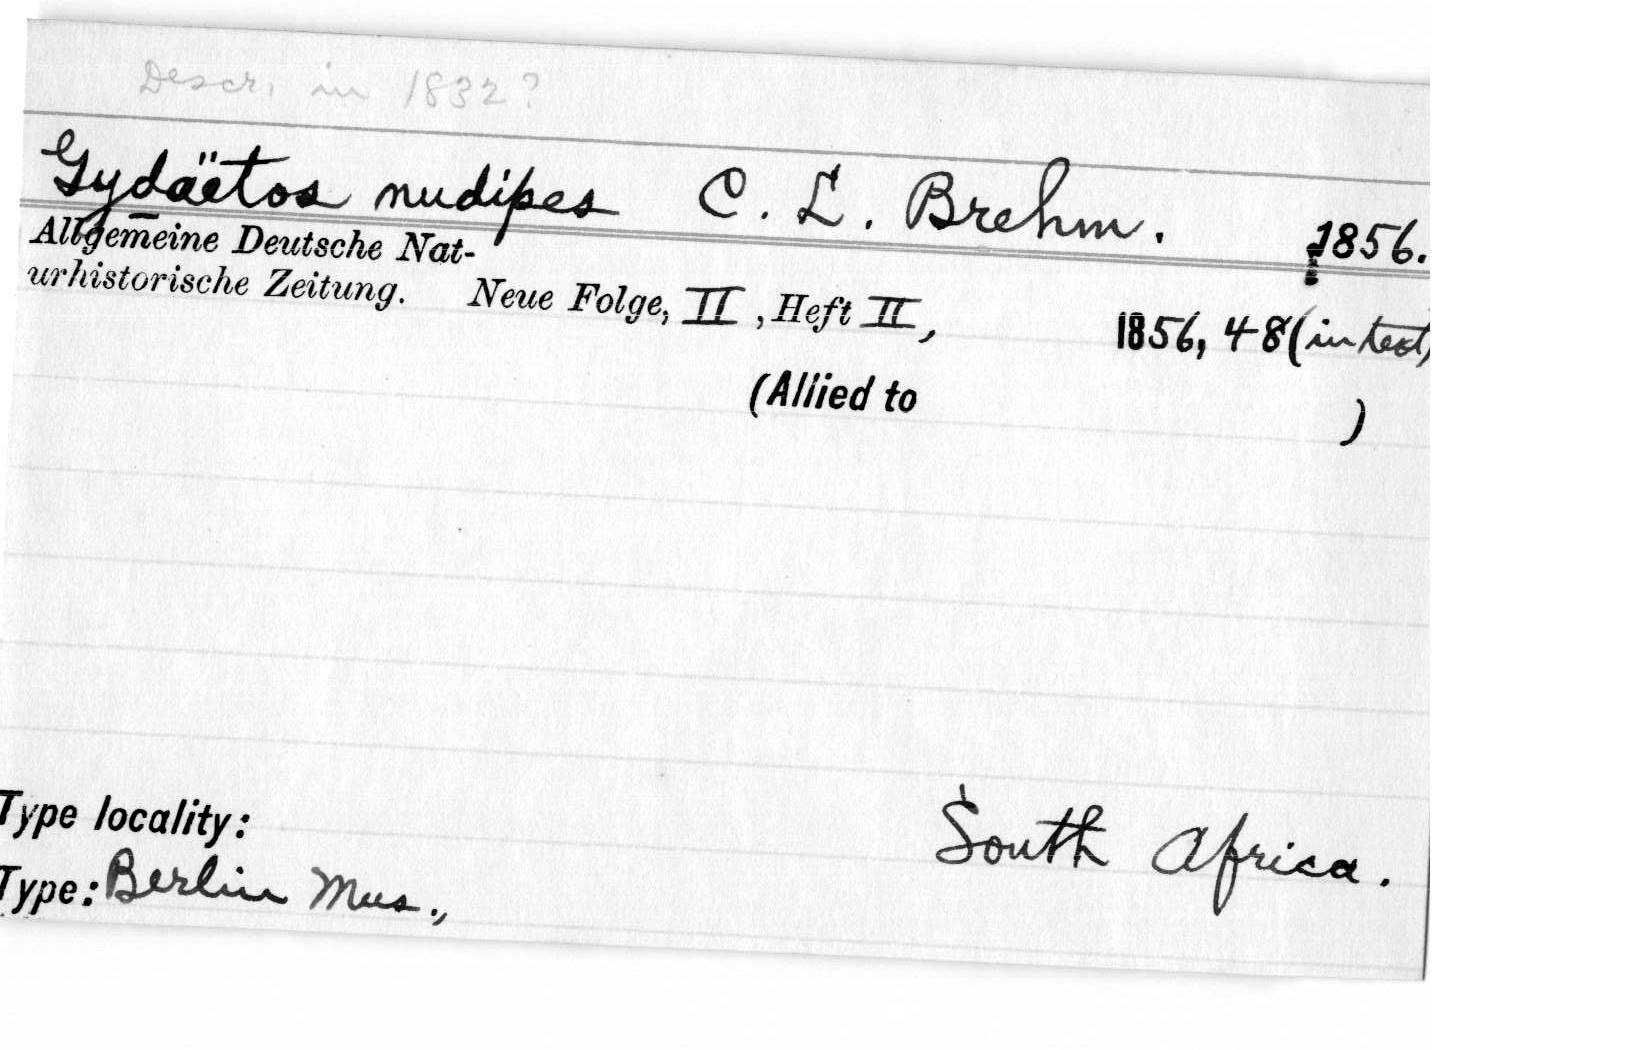 Descr. in 1832?
Gydäetos nudipes C. L. Brehm. 1856.
Allgemeine Deutsche Nat-
urhistorische Zeitung. Neue Folge, II, Heft II, 1856, 48 (in text)
(Allied to )
Type locality: South Africa.
Type: Berlin Mus.,